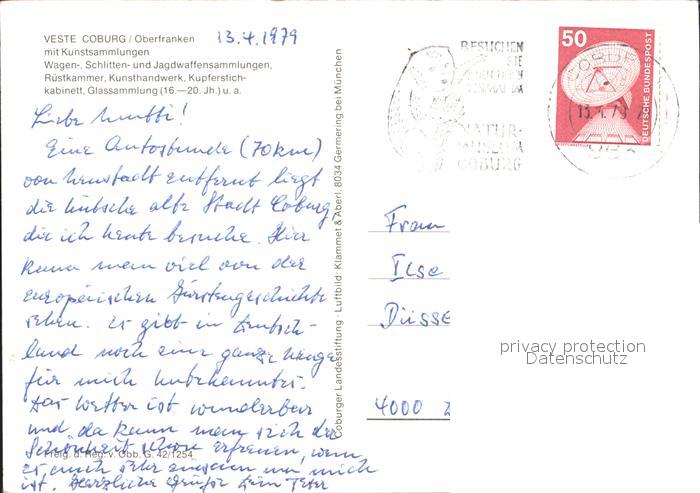 VESTE COBURG / Oberfranken
mit Kunstsammlungen
Wagen-, Schlitten- und Jagdwaffensammlungen,
Rüstkammer, Kunsthandwerk, Kupferstich-
kabinett, Glassammlung (16.—20. Jh.) u. a.
13.4.1979
Liebe Mutti!
Eine Autostunde (70km)
von Neustadt entfernt liegt
die hübsche alte Stadt Coburg,
die ich heute besuche. Hier
kann man viel von der
europäischen Fürstengeschichte
sehen. Es gibt in Deutsch-
land noch eine ganze Menge
für mich Unbekanntes.
Das Wetter ist wunderbar
und da kann man sich der
Schönheit schon erfreuen, wenn
es auch sehr einsam um mich
ist. Herzliche Grüße Dein Peter
Freig. d. Reg. v. Obb. G. 42/1254
Coburger Landesstiftung · Luftbild: Klammet & Aberl, 8034 Germering bei München
BESUCHEN
SIE
NATUR-
MUSEUM
COBURG
50
DEUTSCHE BUNDESPOST
COBURG
13.4.79
Frau
Ilse
Düsse
4000
privacy protection
Datenschutz